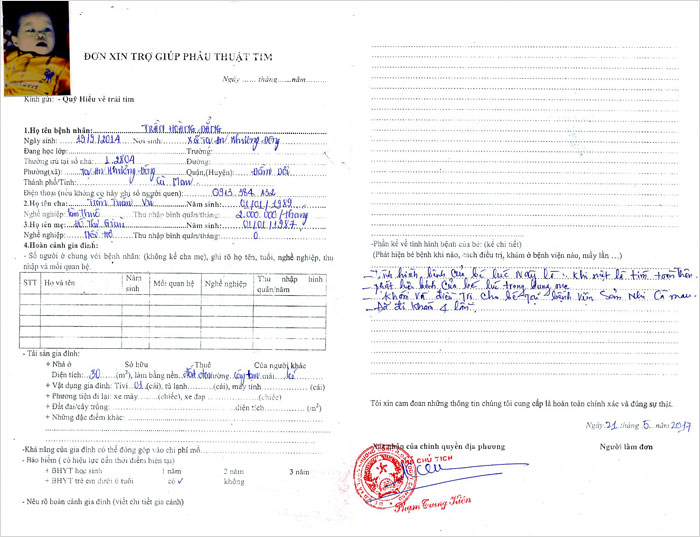 ĐƠN XIN TRỢ GIÚP PHẪU THUẬT TIM
Ngày ...... tháng ......năm.........
Kính gửi: - Quỹ Hiểu về trái tim
1.Họ tên bệnh nhân: TRẦN HOÀNG ĐẲNG
Ngày sinh: 19/9/2014 Nơi sinh: Xã Tạ An Khương Đông
Đang học lớp: Trường:
Thường trú tại số nhà: Đường:
Phường(xã): Tạ An Khương Đông Quận,(Huyện): Đầm Dơi
Thành phố/Tỉnh: Cà Mau
Điện thoại (nếu không có hãy ghi số người quen): 0915 984 132
2.Họ tên cha: Trần Tuấn Vũ Năm sinh: 01/01/1989
Nghề nghiệp: Làm Thuê Thu nhập bình quân/tháng: 2.000.000/tháng
3.Họ tên mẹ: Năm sinh: 01/01/1987
Nghề nghiệp: Thu nhập bình quân/tháng: 0
4.Hoàn cảnh gia đình:
- Số người ở chung với bệnh nhân: (không kể cha mẹ), ghi rõ họ tên, tuổi, nghề nghiệp, thu
nhập và mối quan hệ.
STT Họ và tên Năm sinh Mối quan hệ Nghề nghiệp Thu nhập bình quân/năm
- Tài sản gia đình:
+ Nhà ở Sở hữu Thuê Của người khác
Diện tích: 30 (m²), làm bằng nền: đất tường: cây tạm mái: lá
+ Vật dụng gia đình: Tivi 01 (cái), tủ lạnh (cái), máy tính (cái)
+ Phương tiện đi lại: xe máy (chiếc), xe đạp (chiếc)
+ Đất đai/cây trồng: diện tích (m²)
+ Những đặc điểm khác:
-Khả năng của gia đình có thể đóng góp vào chi phí mổ
- Bảo hiểm ( có hiệu lực đến thời điểm hiện tại)
+ BHYT học sinh 1 năm 2 năm 3 năm
+ BHYT trẻ em dưới 6 tuổi có ✓ không
- Nêu rõ hoàn cảnh gia đình (viết chi tiết gia cảnh)
-Phần kể về tình hình bệnh của bé: (kể chi tiết)
(Phát hiện bé bệnh khi nào, cách điều trị, khám ở bệnh viện nào, mấy lần ...)
- Tình hình bệnh của bé lúc này là: khi mệt là tím toàn thân.
- phát hiện bệnh của bé lúc trong bụng mẹ
- Khám và điều trị cho bé tại bệnh viện Sản Nhi Cà mau.
- Đã đi khám 4 lần.
Tôi xin cam đoan những thông tin chúng tôi cung cấp là hoàn toàn chính xác và đúng sự thật.
Ngày 21 tháng 5 năm 2017
Xác nhận của chính quyền địa phương Người làm đơn
CHỦ TỊCH
Phạm Trung Kiên